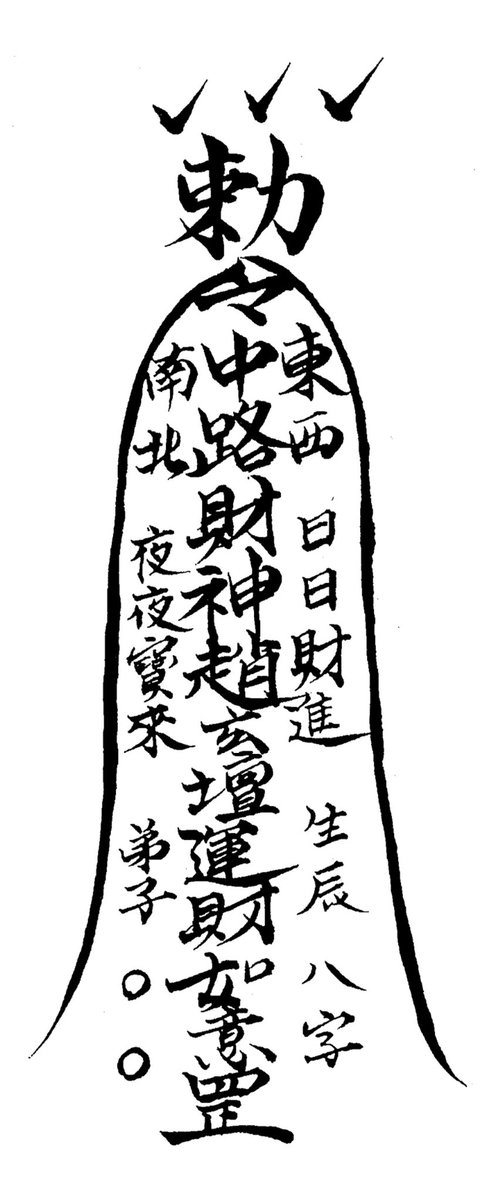 勅令
東西 日日財進 生辰八字
中路財神趙玄壇運財如意罡
南北 夜夜寶來 弟子○○